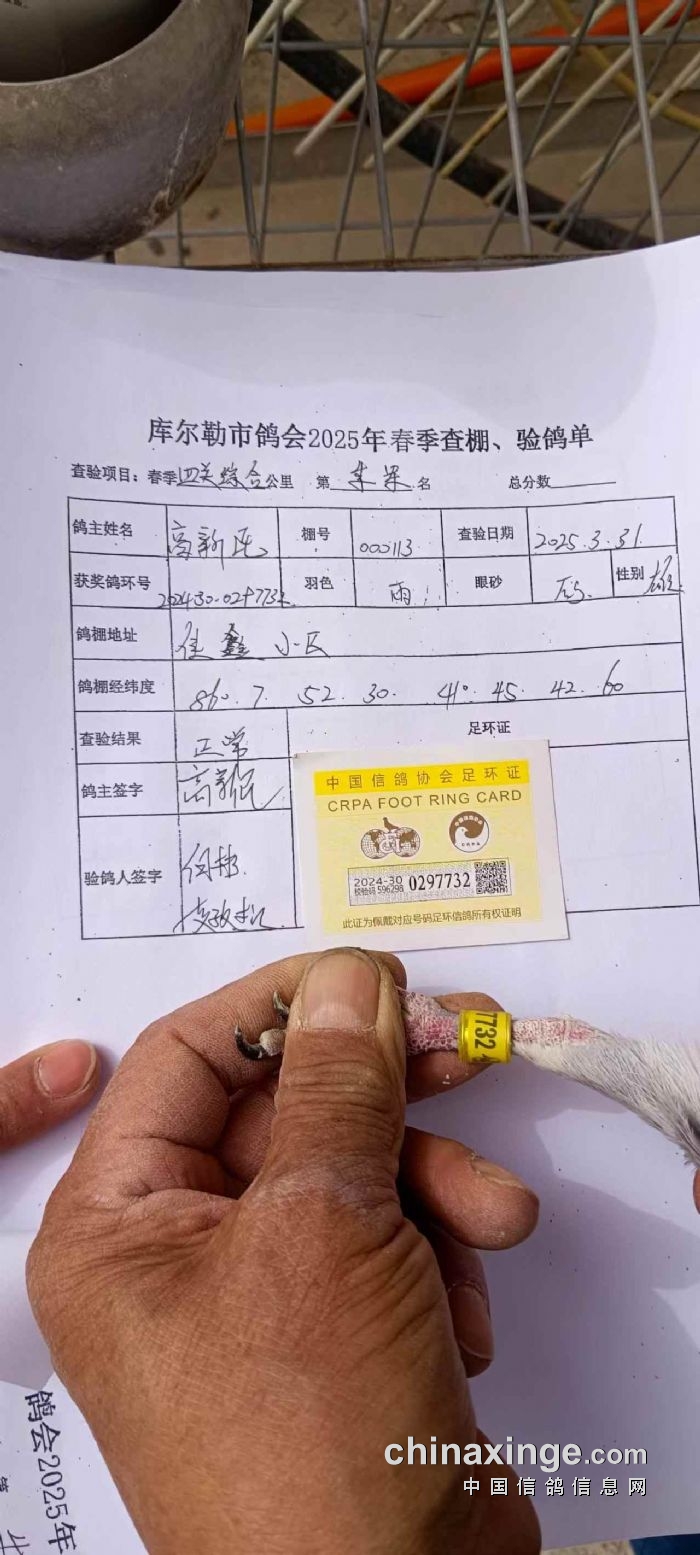 库尔勒市鸽会2025年春季查棚、验鸽单
查验项目：春季四关综合公里 第 名 总分数
鸽主姓名 高新民 棚号 000113 查验日期 2025.3.31
获奖鸽环号 2024-30-0297732 羽色 雨 眼砂 性别 雄
鸽棚地址 佳鑫小区
鸽棚经纬度 86°.7.52.30. 41°.45.42.60
查验结果 正常 足环证
鸽主签字
验鸽人签字
中国信鸽协会足环证
CRPA FOOT RING CARD
2024-30
校验码 596298
0297732
此证为佩戴对应号码足环信鸽所有权证明
7732
鸽会2025年
第
chinaxinge.com
中国信鸽信息网